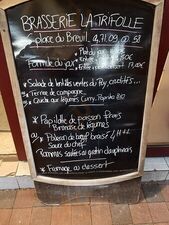 BRASSERIE LA TRIFOLLE
6 place du Breuil . 4.71.09
Formule du jour
Plat du jour
* Salade de lentilles vertes du Puy,
* Terrine de campagne
* Quiche aux légumes Curry, Paprika
* Papillote de poisson frais
Brunoise de légumes
ou * Paleron de bœuf braisé
Sauce du chef
Pommes sautées ou gratin dauphinois
* Fromage ou dessert